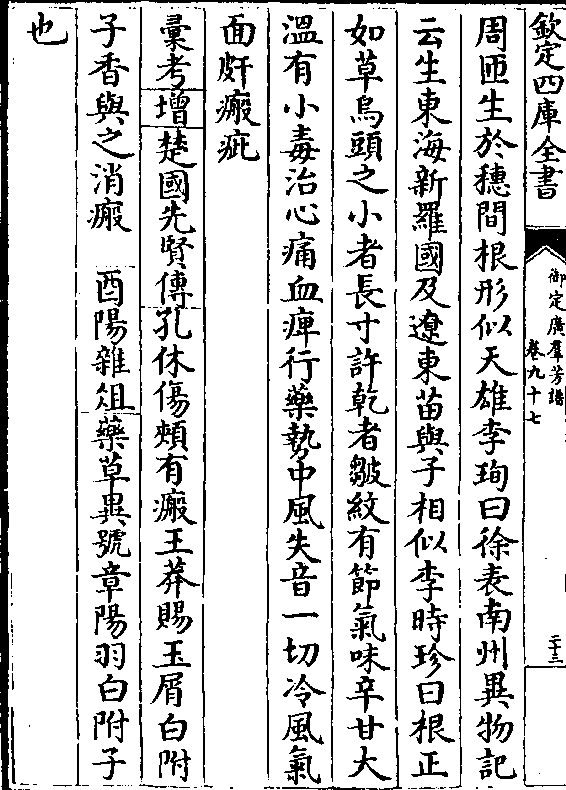 欽定四庫全書
御定廣羣芳譜
卷九十七
二十三
周匝生於穗間根形似天雄李珣曰徐表南州異物記
云生東海新羅國及遼東苗與子相似李時珍曰根正
如草烏頭之小者長寸許乾者皺紋有節氣味辛甘大
溫有小毒治心痛血痺行藥勢中風失音一切冷風氣
面皯瘢疵
彙考增楚國先賢傳孔休傷頰有瘢王莽賜玉屑白附
子香與之消瘢　酉陽雜俎藥草異號章陽羽白附子
也